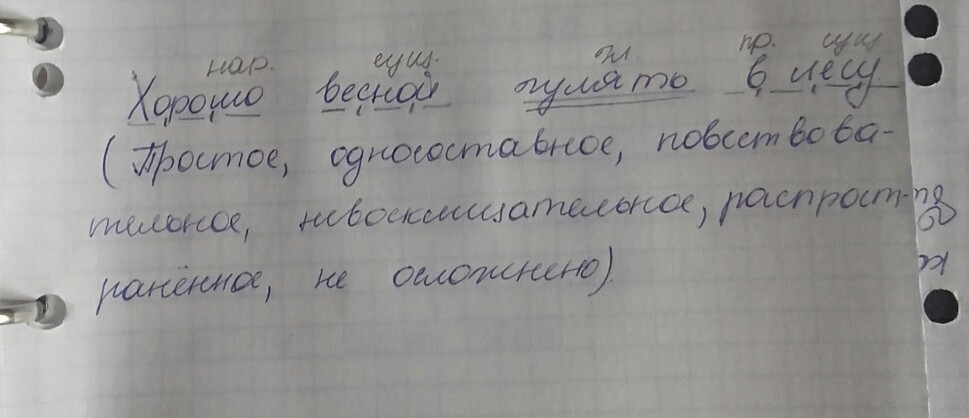 нар. сущ. гл пр. сущ
Хорошо весной гулять в лесу.
(Простое, односоставное, повествова-
тельное, невосклицательное, распрост-
ранённое, не осложнено).